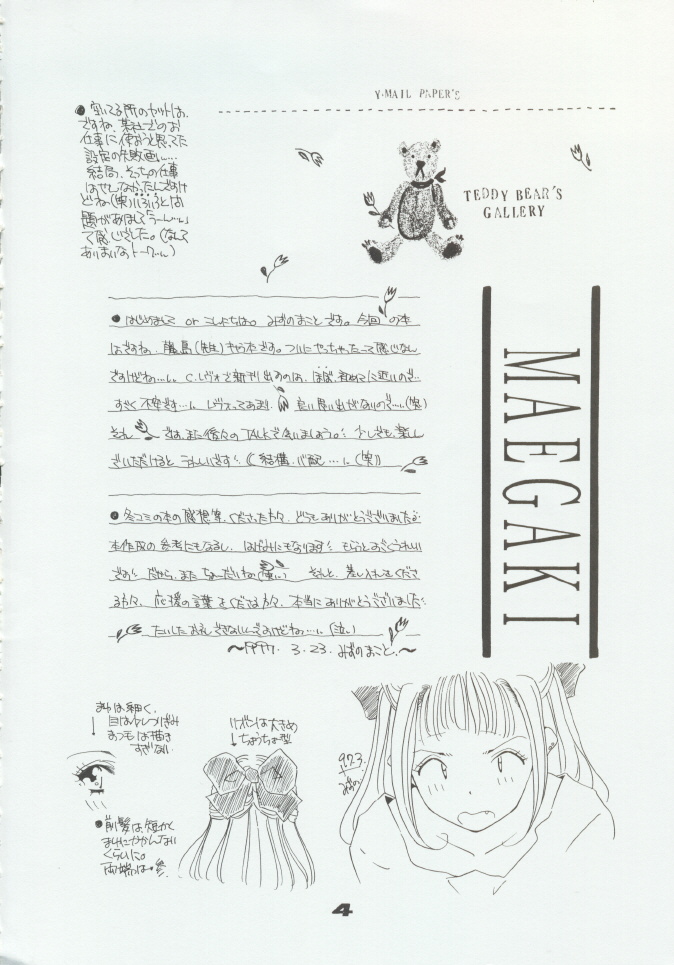 Y·MAIL PAPER'S
●空いてる所のカットは、
ですね、某社でのお
仕事に使おうと思ってた
設定の失敗画…
結局、そっちの仕事
はやんなかったんですけ
どね(笑)いろいろと
て感じでした。(なんて
あいまいなトーク…)
TEDDY BEAR'S
GALLERY
MAEGAKI
●はじめまして or こんにちは。みずのまことです。今回の本
はですね、本です。ついにやっちゃったーって感じなん
ですけどね…。C.レヴォで新刊出すのは、ほぼ、初めてに近いので…
すごく不安です…。レヴォってあまり、良い思い出がないので…(笑)
それでは、また後々のTALKで会いましょう。少しでも楽しん
でいただけると うれしいです (結構、心配…(笑))
●冬コミの本の感想等、くださった方々、どうもありがとうございました
本作成の参考にもなるし、はげみにもなります もらうとすごくうれしい
です だから、またちょーだいね(笑い) それと、差し入れをくださ
る方々、応援の言葉をくださる方々、本当にありがとうございました
たいしたお礼できないんですけどね…(泣い)
〜1997. 3. 23. みずのまこと.〜
まゆは細く、
目は少しつりぎみ
まつもは描き
すぎない
リボンは大きめ
ちょうちょ型
●前髪は、短かく
まゆにかかんない
くらいに。
両端は
97.3.23.
みずの
4